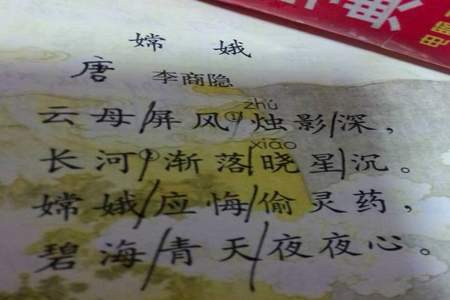 嫦娥
唐 李商隐
zhú
云母屏风①烛影深，
xiǎo
长河渐落晓星沉。
嫦娥应悔偷灵药，
碧海青天夜夜心。